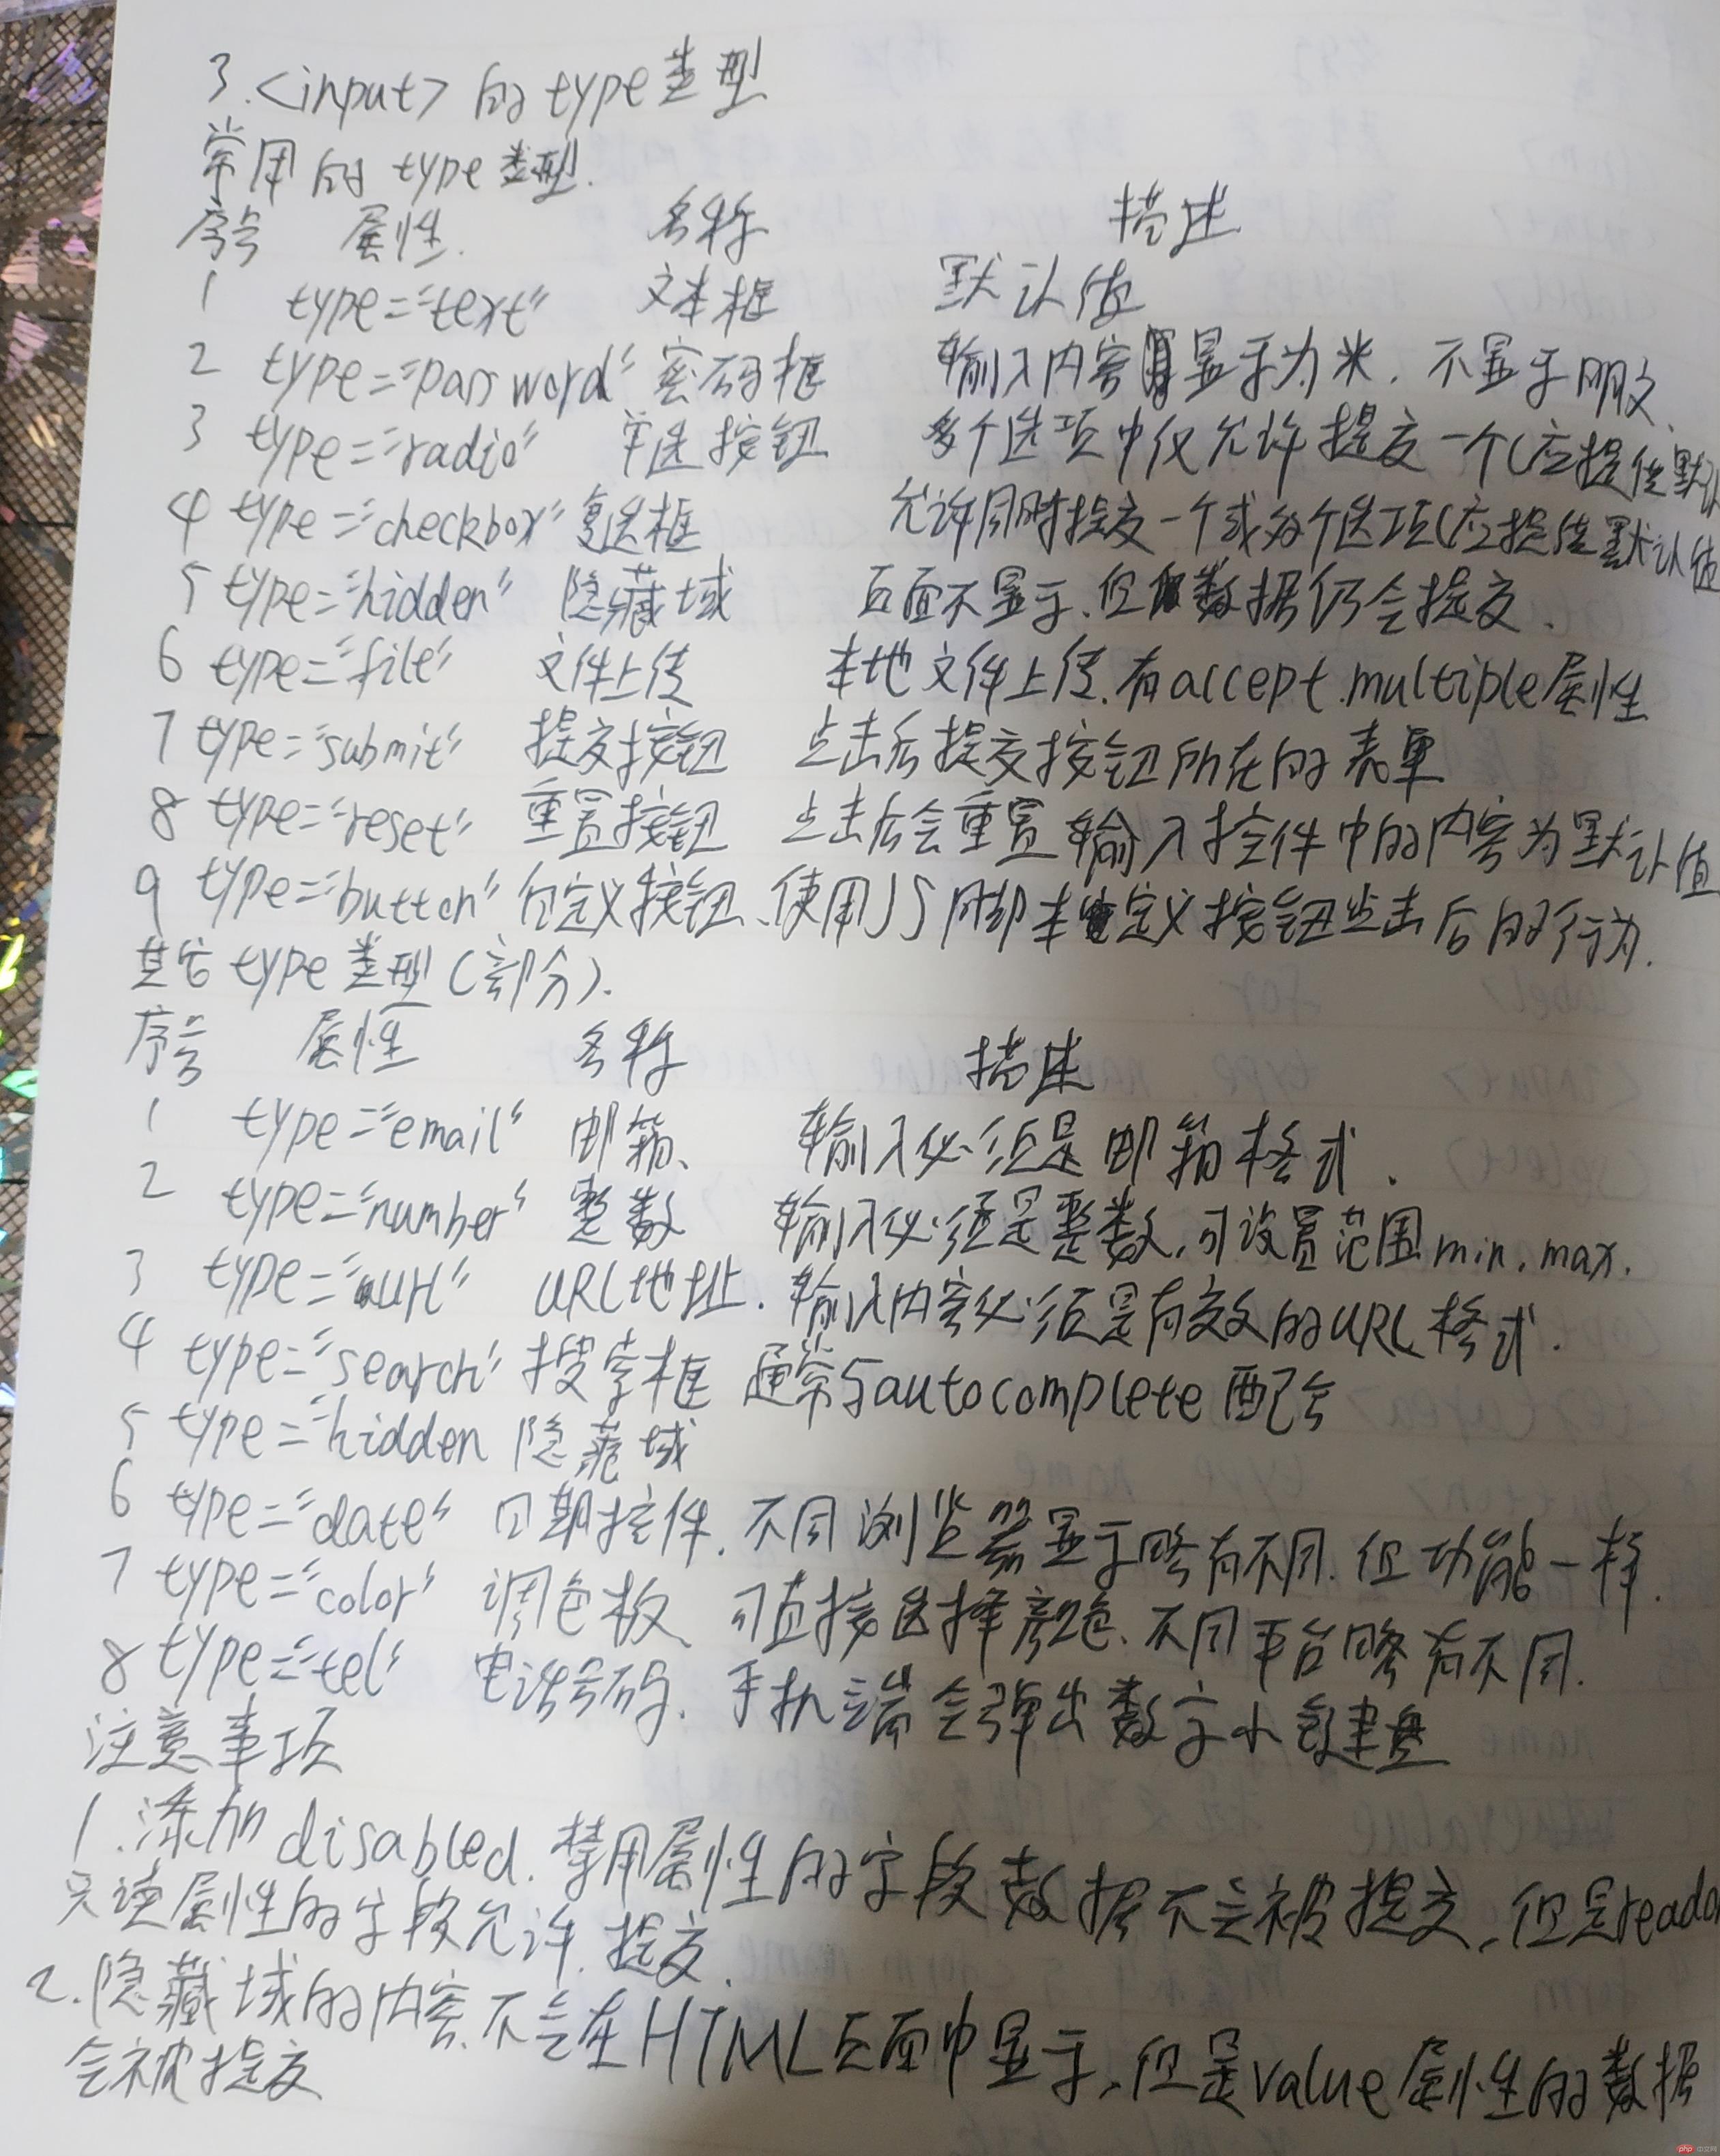 3.<input>的type类型
常用的type类型.
序号 属性. 名称 描述
1 type="text" 文本框 默认值
2 type="password" 密码框 输入内容显示为米. 不显示明文、
3 type="radio" 单选按钮 多个选项中仅允许提交一个(应提供默认
4 type="checkbox" 复选框 允许同时提交一个或多个选项(应提供默认值
5 type="hidden" 隐藏域 页面不显示、但数据仍会提交.
6 type="file" 文件上传 本地文件上传.有accept.multiple属性
7 type="submit" 提交按钮 点击后提交按钮所在的表单
8 type="reset" 重置按钮 点击后会重置输入控件中的内容为默认值
9 type="button" 自定义按钮、使用JS脚本定义按钮点击后的行为.
其它type类型(部分).
序号 属性 名称 描述
1 type="email" 邮箱、 输入必须是邮箱格式.
2 type="number" 整数 输入必须是整数,可设置范围min,max.
3 type="url" URL地址. 输入内容必须是有效的URL格式.
4 type="search" 搜索框 通常与autocomplete配合
5 type="hidden 隐藏域
6 type="date" 日期控件. 不同浏览器显示略有不同.但功能一样.
7 type="color" 调色板、可直接选择颜色、不同平台略有不同.
8 type="tel" 电话号码. 手机端会弹出数字小键盘
注意事项
1.添加disabled.禁用属性的字段数据不会被提交,但是reado
只读属性的字段允许提交.
2.隐藏域的内容不会在HTML页面中显示,但是value属性的数据
会被提交
php 中文网